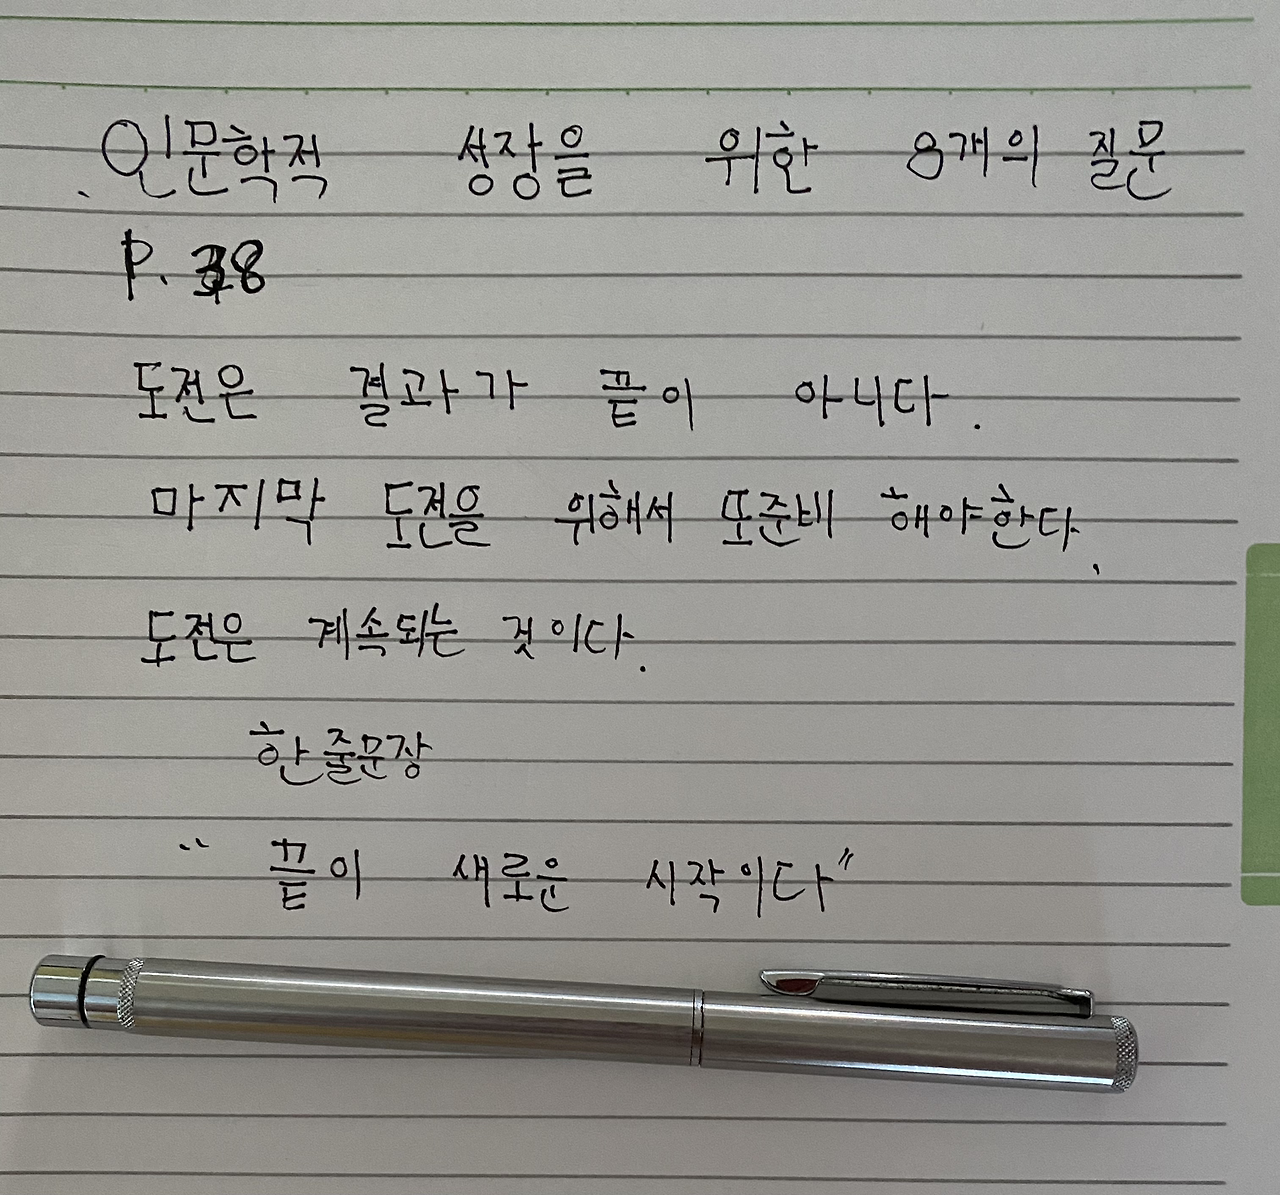 인문학적 성장을 위한 8개의 질문
P. 38
도전은 결과가 끝이 아니다.
마지막 도전을 위해서 또준비 해야한다.
도전은 계속되는 것이다.
한줄문장
" 끝이 새로운 시작이다"